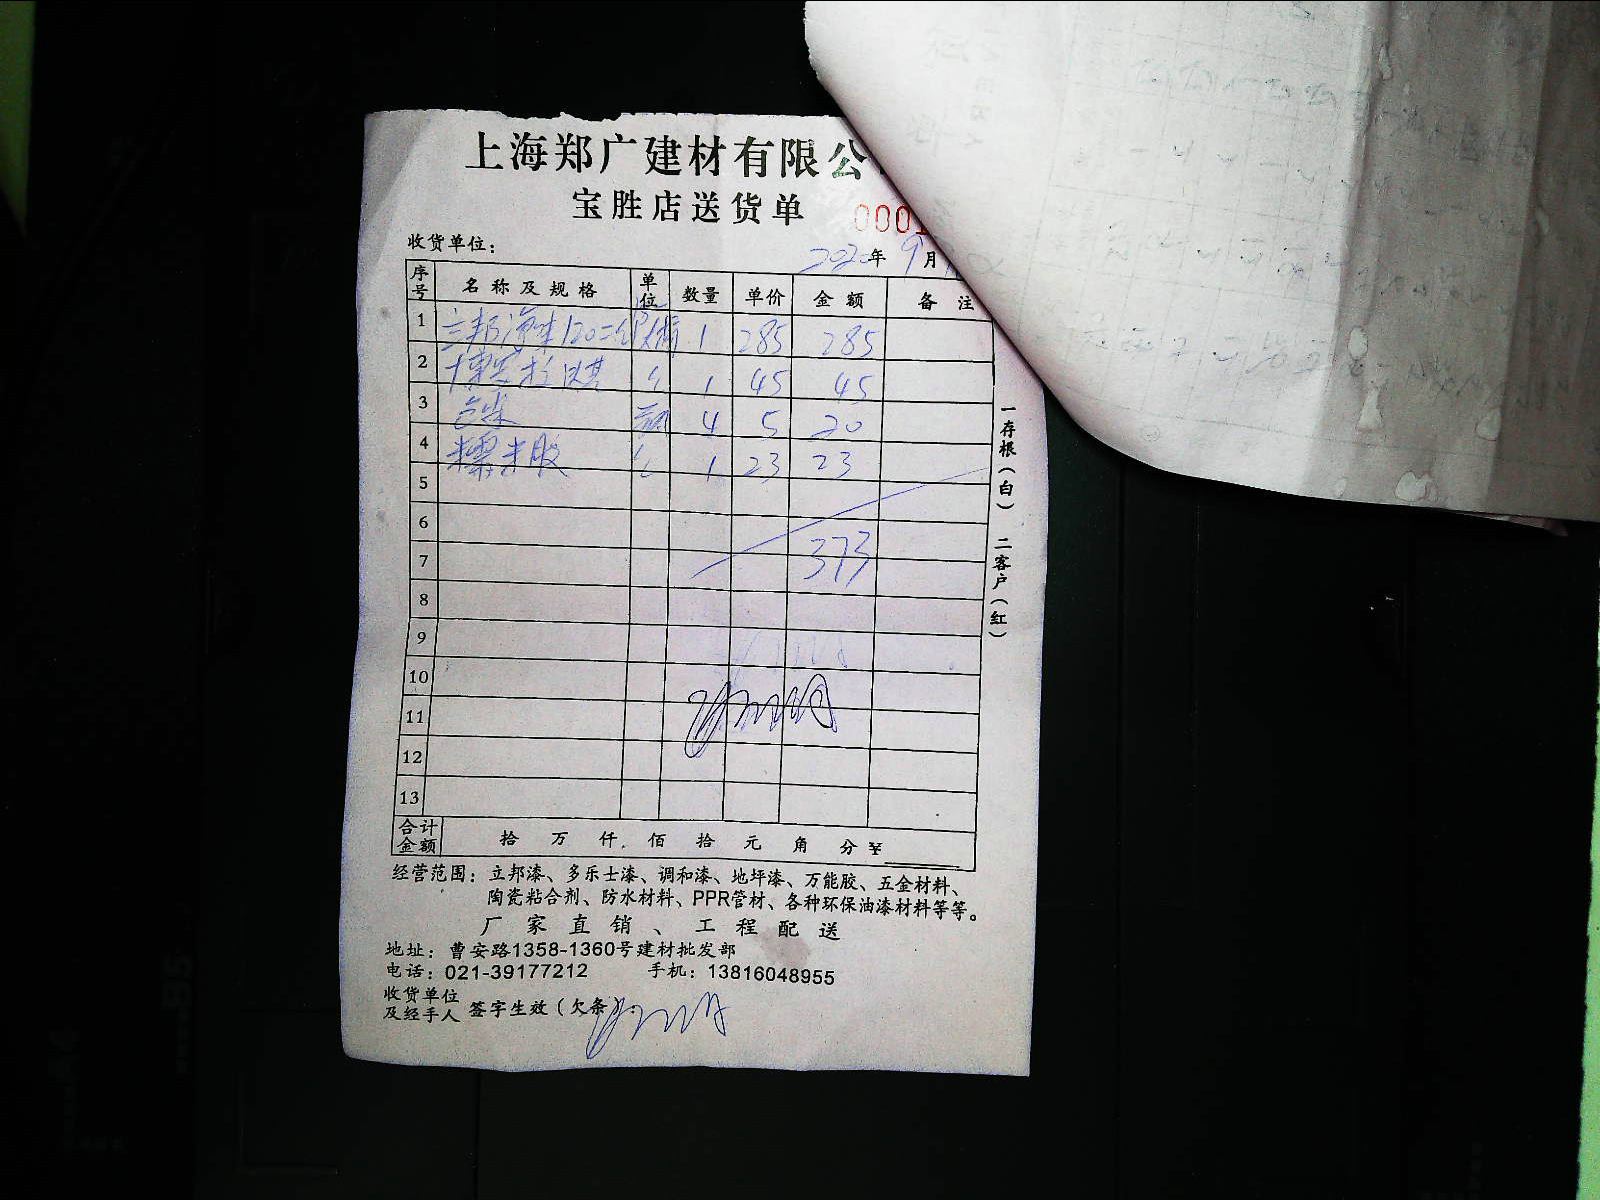 上海郑广建材有限公
宝胜店送货单 000
收货单位： 2020年9月
序号 名称及规格 单位 数量 单价 金额 备注
1 立邦净味120二合 1 285 285
2 1 45 45
3 色浆 4 5 20
4 糯米胶 1 23 23
5
6
373
7
8
9
10
11
12
13
合计金额 拾 万 仟 佰 拾 元 角 分 ¥
一存根（白） 二客户（红）
经营范围：立邦漆、多乐士漆、调和漆、地坪漆、万能胶、五金材料、
陶瓷粘合剂、防水材料、PPR管材、各种环保油漆材料等等。
厂家直销、工程配送
地址：曹安路1358-1360号建材批发部
电话：021-39177212 手机：13816048955
收货单位
及经手人 签字生效（欠条）：